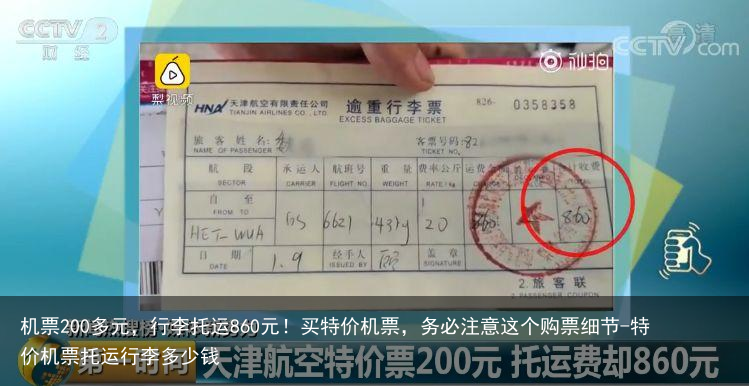 CCTV 2
财经
CCTV.com
高清
梨视频
秒拍
HNA 天津航空有限责任公司
TIANJIN AIRLINES CO., LTD.
逾重行李票
EXCESS BAGGAGE TICKET
826- 0358358
旅客姓名:
NAME OF PASSENGER
客票号码: 82
TICKET NO.
航段 承运人 航班号 重量 费率/公斤 运费金额 合计收费
SECTOR CARRIER FLIGHT NO. WEIGHT RATE/kg
自 至
FROM TO
HET-WUA GS 6621 43kg 20 860 860
日期 1.9 经手人 盖章
DATE ISSUED BY SIGNATURE
2.旅客联
机票200多元，行李托运860元！买特价机票，务必注意这个购票细节-特
价机票托运行李多少钱
第一时间 天津航空特价票200元 托运费却860元